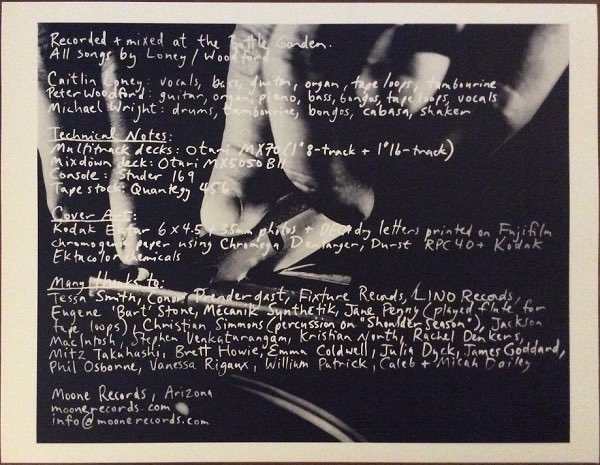 Recorded + mixed at the Bottle Garden.
All songs by Loney / Woodford.
Caitlin Loney: vocals, bass, guitar, organ, tape loops, tambourine
Peter Woodford: guitar, organ, piano, bass, bongos, tape loops, vocals
Michael Wright: drums, tambourine, bongos, cabasa, shaker
Technical Notes:
Multitrack decks: Otari MX70 (1" 8-track + 1" 16-track)
Mixdown deck: Otari MX5050 BII
Console: Studer 169
Tape stock: Quantegy 456
Cover Art:
Kodak Ektar 6x4.5 + 35mm photos + letters printed on Fujifilm
chromogenic paper using Chromega Enlarger, Durst RPC40 + Kodak
Ektacolor chemicals
Many thanks to:
Tessa Smith, Conor Prendergast, Fixture Records, LINO Records,
Eugene 'Bart' Stone, Mecanik Synthetik, Jane Penny (played flute for
tape loops), Christian Simmons (percussion on "Shoulder Season"), Jackson
MacIntosh, Stephen Venkatarangam, Kristian North, Rachel Denkers,
Mitz Takahashi, Brett Howie, Emma Coldwell, Julia Dyck, James Goddard,
Phil Osborne, Vanessa Rigaux, William Patrick, Caleb + Micah Dailey
Moone Records, Arizona
moonerecords.com
info@moonerecords.com